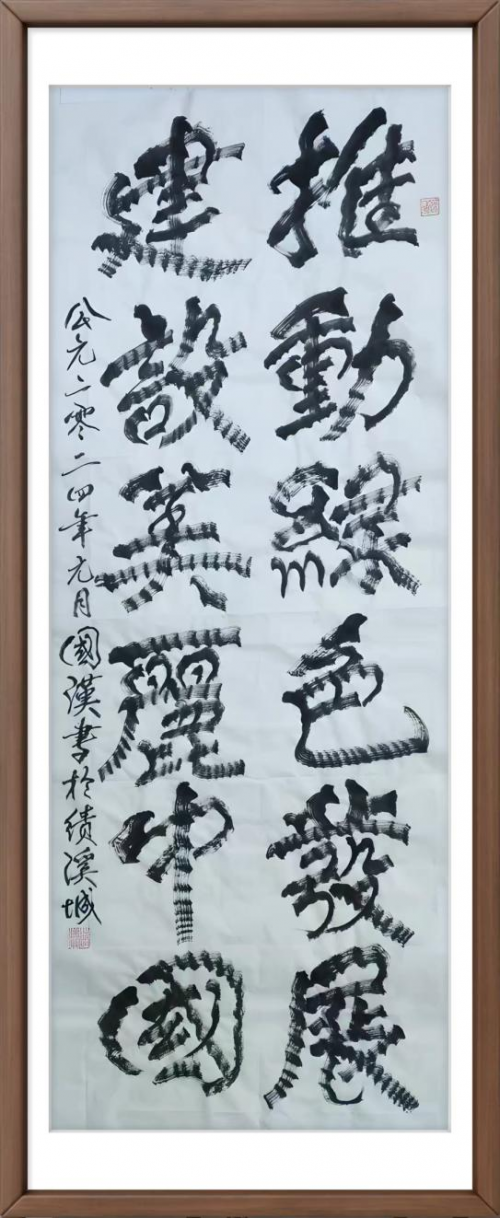 推動綠色發展
建設美麗中國
公元二零二四年元月國漢書於績溪城